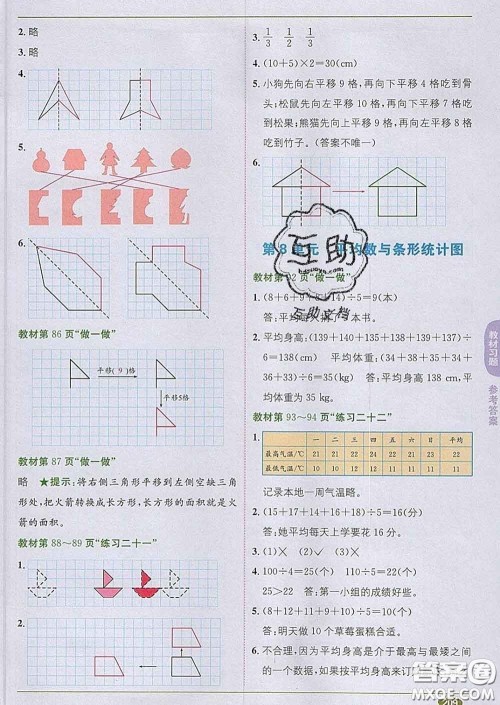 2. 略
3. 略
4.
5.
6.
教材第 86 页“做一做”
平移（ 9 ）格
平移5格
教材第 87 页“做一做”
略 ★提示：将右侧三角形平移到左侧空缺三角
形处，把火箭转换成长方形，长方形的面积就是火
箭的面积。
教材第 88～89 页“练习二十一”
1.
2.
3. 1/3 1/2 1/3
4. (10+5)×2=30(cm)
5. 小狗先向右平移 9 格，再向下平移 4 格吃到骨
头；松鼠先向下平移 10 格，再向左平移 7 格吃
到松果；熊猫先向上平移 9 格，再向左平移 8 格
吃到竹子。（答案不唯一）
6.
第 8 单元 平均数与条形统计图
教材第 92 页“做一做”
1. (8+6+9+8+14)÷5=9(本)
答：平均每人 本书。
2. 平均身高：(139+140+135+138+139+137)÷
6=138(cm) 平均体重：(34+38+35+34+
36+33)÷6=35(kg) 答：平均身高 138 cm，平
均体重为 35 kg。
教材第 93～94 页“练习二十二”
1.
一 二 三 四 五 六 日 平均
最高气温/℃ 21 21 22 22 24 23 21 22
最低气温/℃ 10 11 11 12 14 13 13 12
记录本地一周气温略。
2. (15+16+18+16+15)÷5=16(分)
答：她平均每天上学要花 16 分。
3. (1)× (2)√ (3)×
4. 100÷4=25(个) 110÷5=22(个)
25＞22 答：第一小组的成绩好些。
5. (8+12+11+9+10)÷5=10(个)
答：明天做 10 个草莓蛋糕合适。
6. 不合理，因为平均身高是介于最高与最矮之间的
一个数据，如果按平均身高来订
教材习题
参考答案
互助
互助文档
答案圈
MXQE.COM